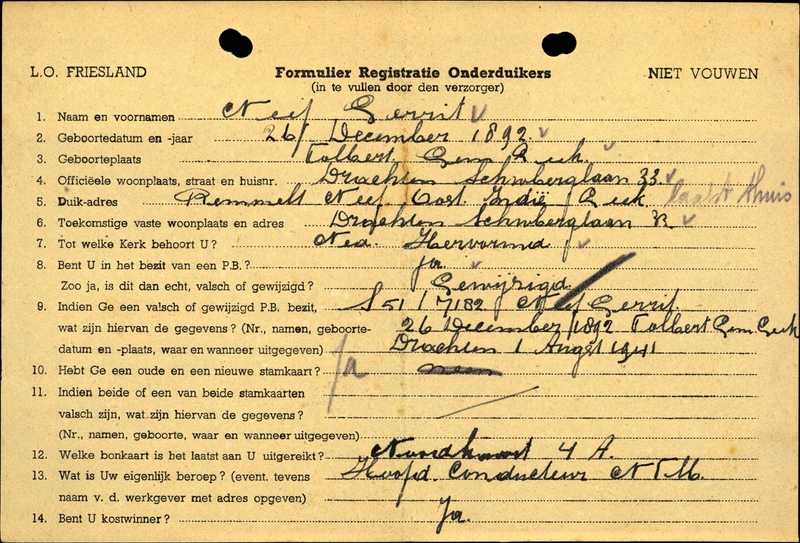 L.O. FRIESLAND Formulier Registratie Onderduikers NIET VOUWEN
(in te vullen door den verzorger)
1. Naam en voornamen Neef Gerrit
2. Geboortedatum en -jaar 26 December 1892
3. Geboorteplaats Tolbert Gem Leek
4. Officiëele woonplaats, straat en huisnr. Drachten Schuberglaan 33
5. Duik-adres Remmelt Neef Oost Indië Leek laatst thuis
6. Toekomstige vaste woonplaats en adres Drachten 33
7. Tot welke Kerk behoort U? Ned. Hervormd
8. Bent U in het bezit van een P.B.? ja
Zoo ja, is dit dan echt, valsch of gewijzigd? Gewijzigd
9. Indien Ge een valsch of gewijzigd P.B. bezit, S 51 / 7182 Neef Gerrit
wat zijn hiervan de gegevens? (Nr., namen, geboorte- 26 December 1892 Tolbert Gem Leek
datum en -plaats, waar en wanneer uitgegeven) Drachten 1 1941
10. Hebt Ge een oude en een nieuwe stamkaart? ja neen
11. Indien beide of een van beide stamkaarten
valsch zijn, wat zijn hiervan de gegevens?
(Nr., namen, geboorte, waar en wanneer uitgegeven)
12. Welke bonkaart is het laatst aan U uitgereikt? Noodkaart 4 A.
13. Wat is Uw eigenlijk beroep? (event. tevens Hoofd Conducteur N T M.
naam v. d. werkgever met adres opgeven)
14. Bent U kostwinner? Ja.